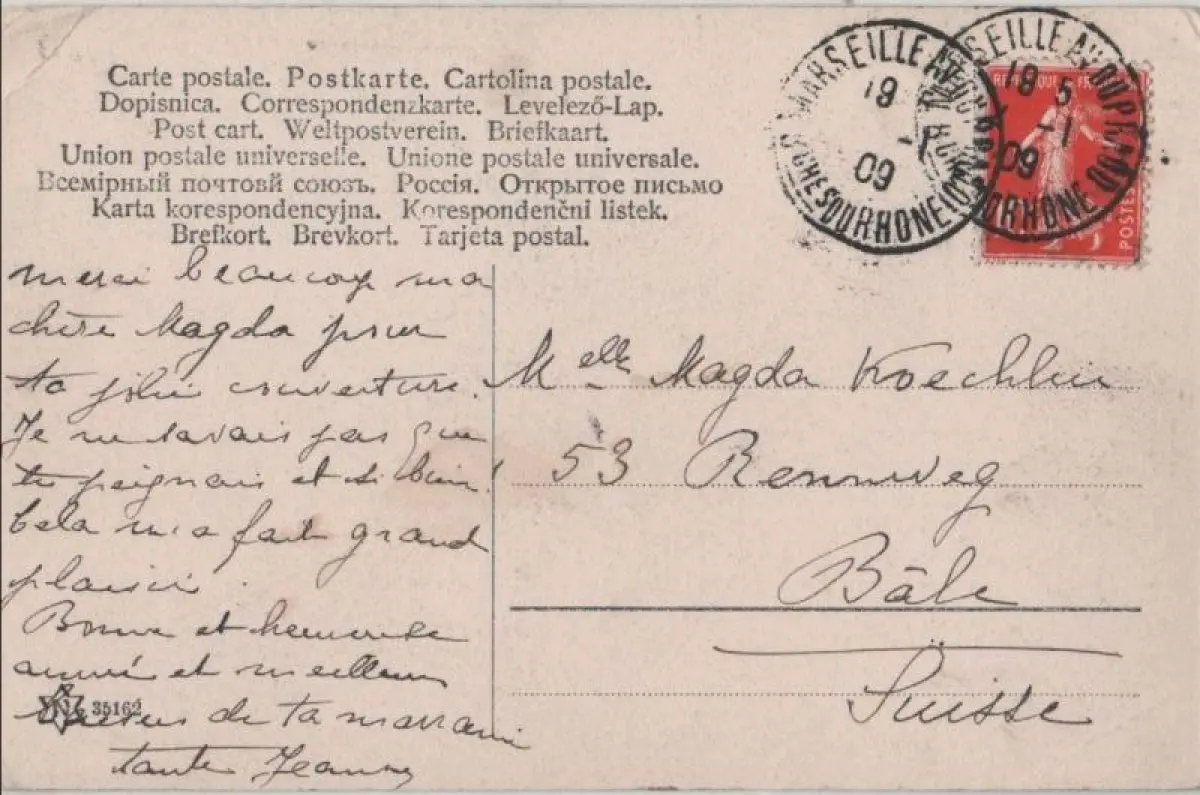 Carte postale. Postkarte. Cartolina postale.
Dopisnica. Correspondenzkarte. Levelező-Lap.
Post cart. Weltpostverein. Briefkaart.
Union postale universelle. Unione postale universale.
Всемірный почтовй союзъ. Россія. Открытое письмо
Karta korespondencyjna. Korespondenčni listek.
Brefkort. Brevkort. Tarjeta postal.
MARSEILLE
19
09
BCHES DU RHONE
MARSEILLE AV. DU PRADO
19 5
-1
09
DU RHONE
POSTES
merci beaucoup ma
chère Magda pour
ta jolie couverture.
Je ne savais pas que
tu peignais et si bien!
Cela m'a fait grand
plaisir.
Bonne et heureuse
année et meilleurs
baisers de ta marraine
tante Jeanne
35162
Melle Magda Koechlin
53 Rennweg
Bâle
Suisse